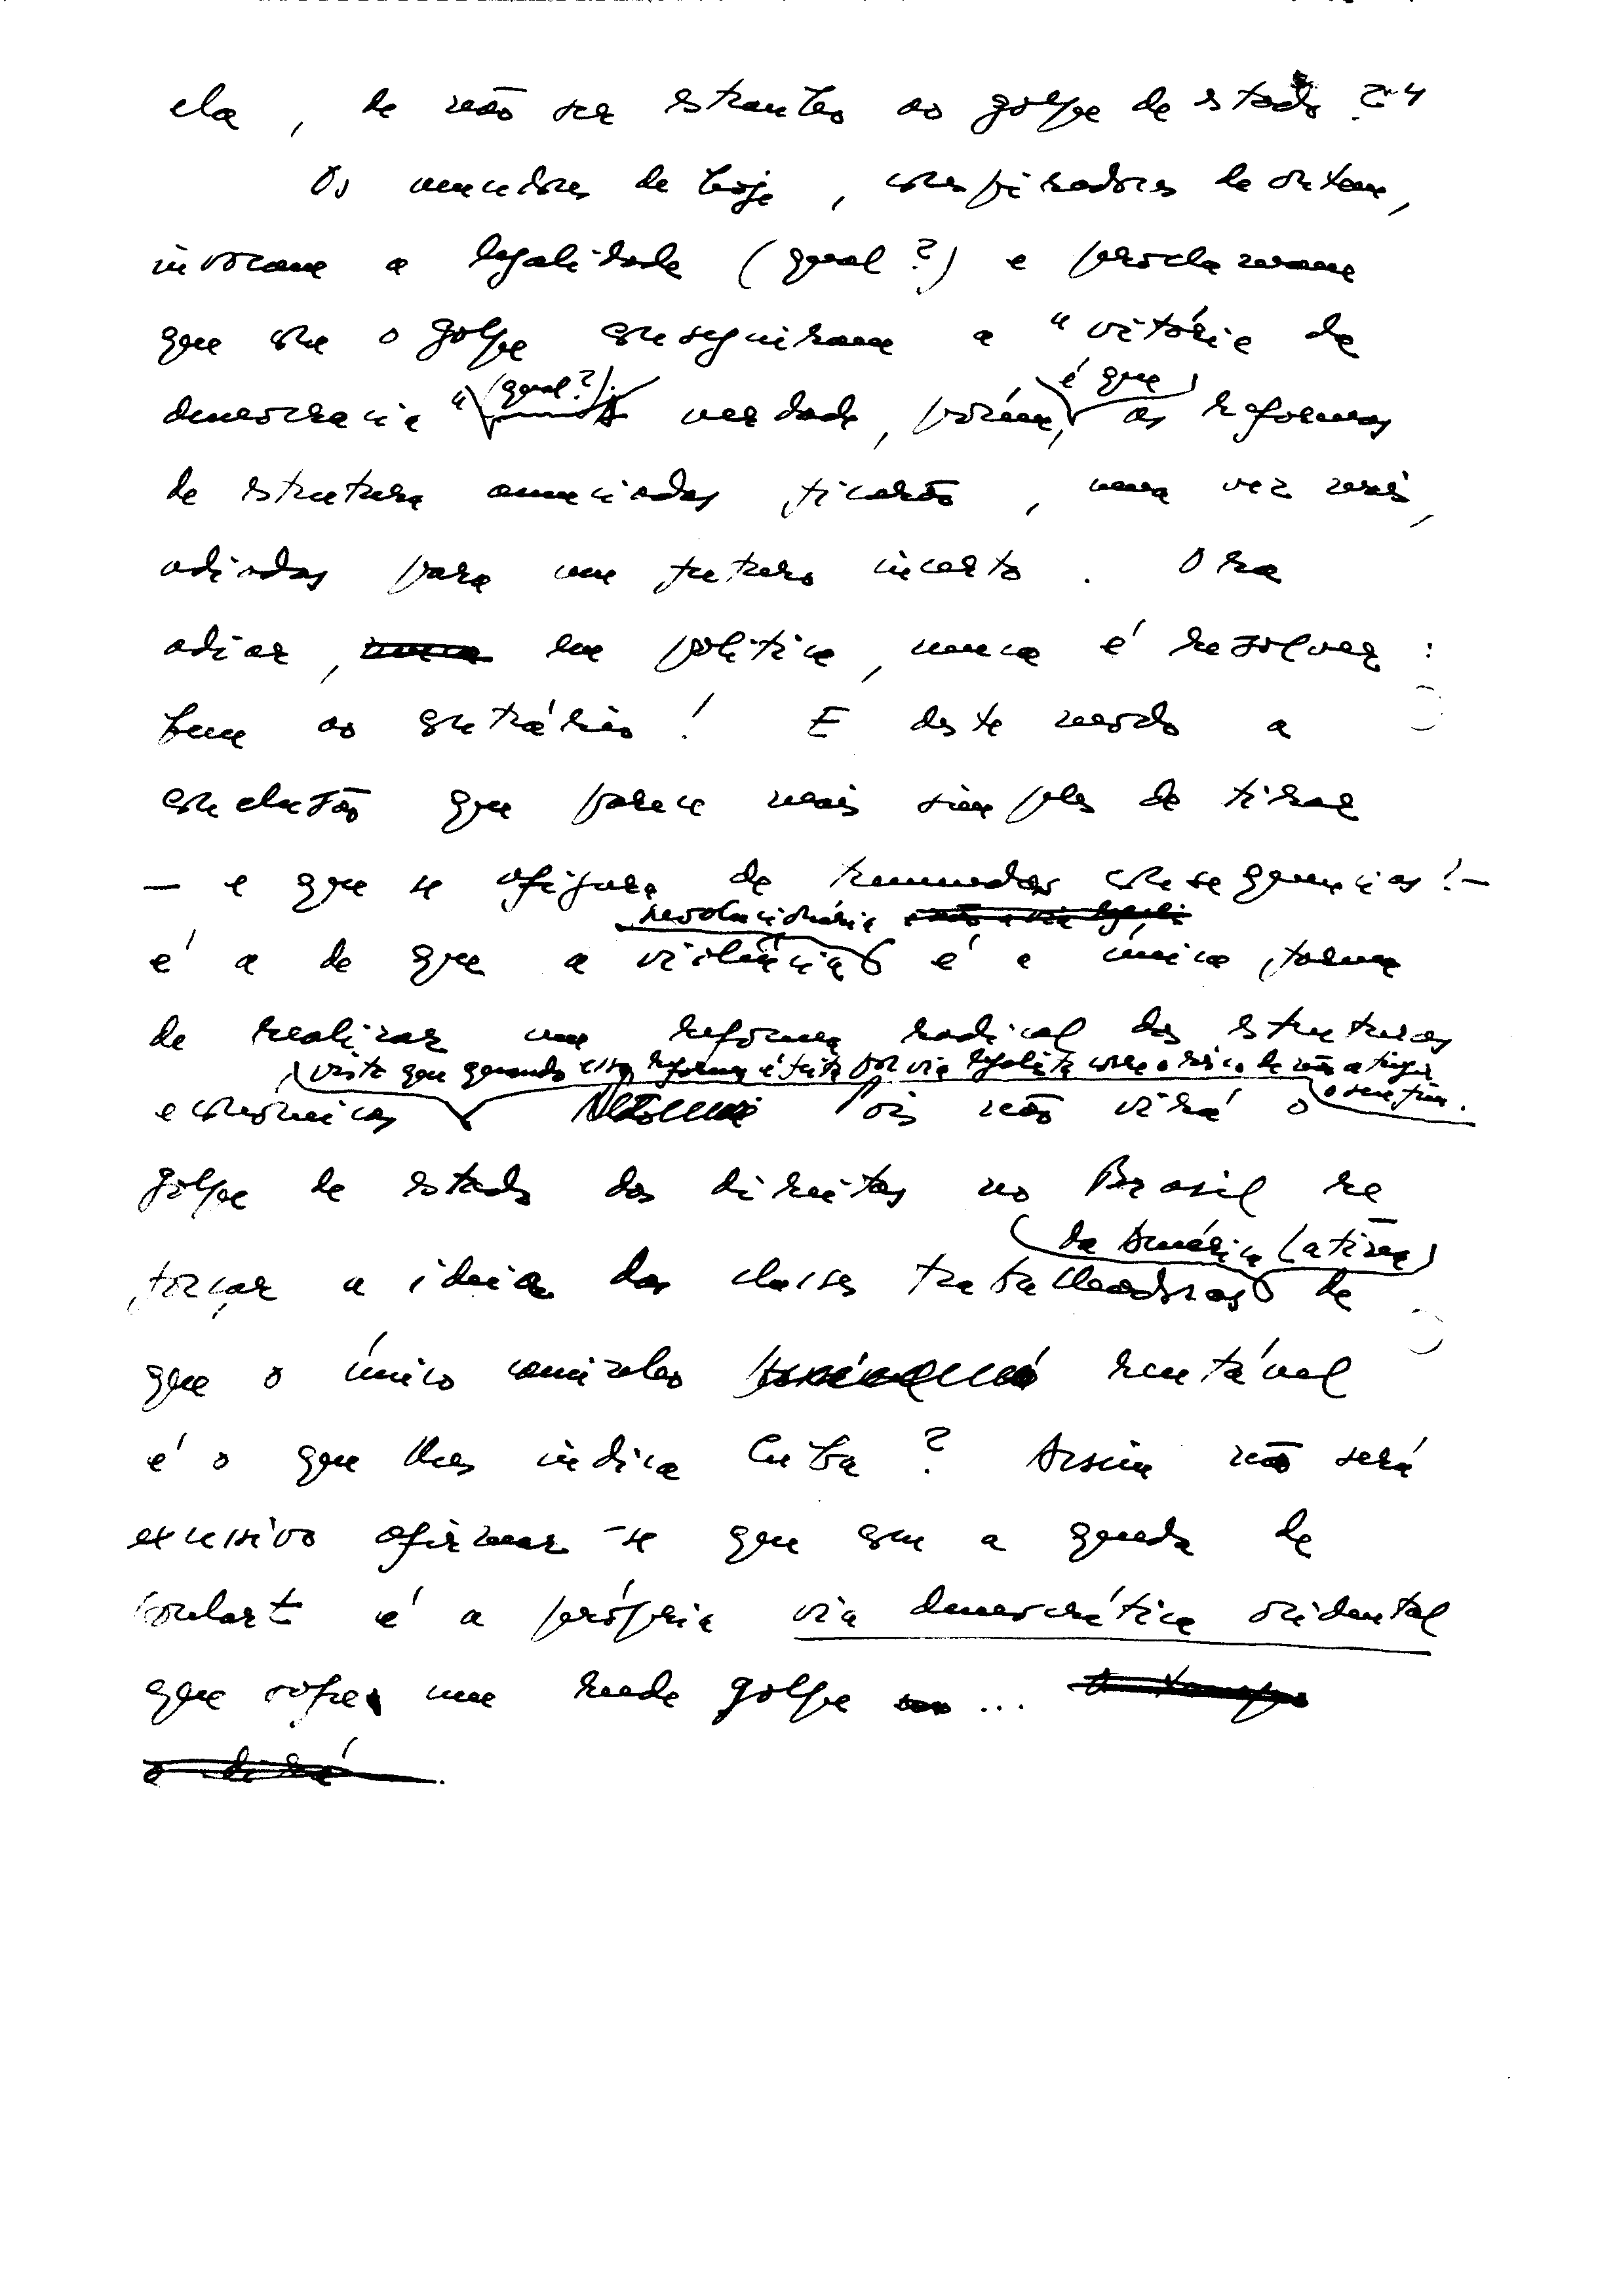 ela, de não ser estranho ao golpe de estado?"
Os vencedores de hoje, conspiradores de ontem,
invocam a legalidade (qual?) e proclamam
que com o golpe conseguiram a "vitória da
democracia" (qual?). A verdade, porém, é que as reformas
de estrutura anunciadas ficarão, uma vez mais,
adiadas para um futuro incerto. Ora
adiar, nunca em política, nunca é resolver:
bem ao contrário! E deste modo a
conclusão que parece mais simples de tirar
— e que se afigura de tremendas consequências! —
revolucionária
é a de que a violência é a única forma
de realizar uma reforma radical das estruturas
visto que quando essa reforma é feita por via legalista corre o risco de não atingir
o seu fim.
económicas Pois não virá o
golpe de estado das direitas no Brasil re
da América Latina
forçar a ideia das classes trabalhadoras de
que o único caminho rentável
é o que lhes indica Cuba? Assim não será
excessivo afirmar-se que com a queda de
Goulart é a própria via democrática ocidental
que sofre um rude golpe ... O tempo
o dirá.